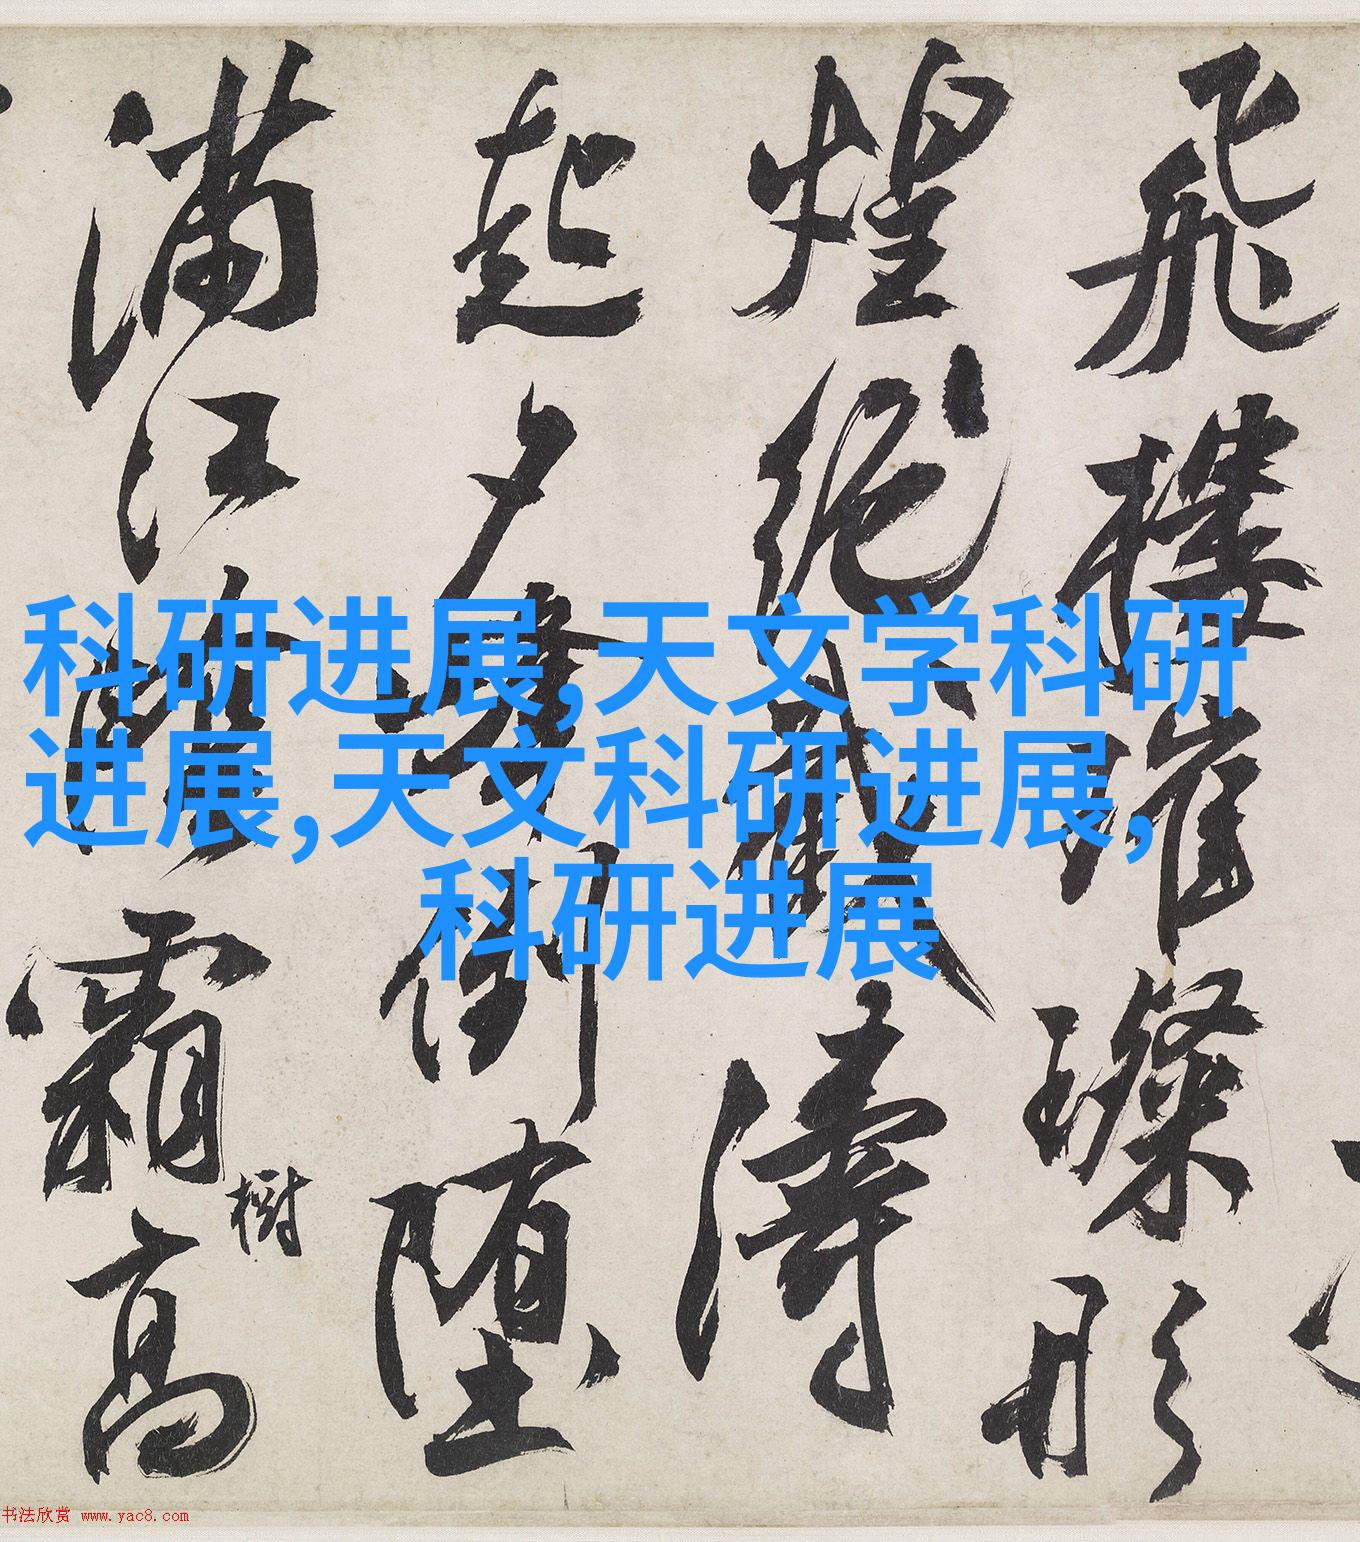 飛樓璀璨形
煌絶截濤
起夕舞倒堕
滿江
霜高
樹
科研进展,天文学科研
进展,天文科研进展,
科研进展
书法欣赏 www.yac8.com